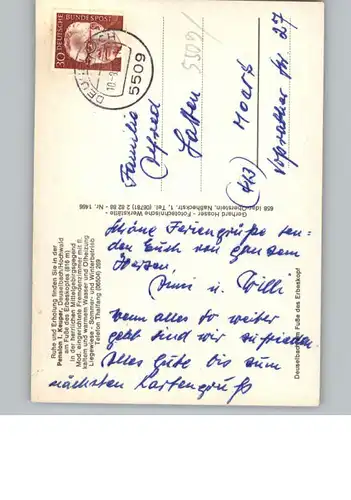 30 DEUTSCHE BUNDESPOST
5509
5509
Familie
Alfred
(413) Moers
Ruhe und Erholung finden Sie in der
Pension I. Knupper, Deuselbach/Hochwald
am Fuße des Erbeskopfes (816 m)
in der herrlichen Mittelgebirgsgegend
Mod. eingerichtete Fremdenzimmer mit fl.
kaltem und warmem Wasser und Ölheizung
Liegewiese - Sommer- und Winterbetrieb
Telefon Thalfang (06504) 269
Gerhard Hosser - Fototechnische Werkstätte -
658 Idar-Oberstein, Nahbeckstr. 1, Tel. (06781) 2 82 88 - Nr. 1466
Deuselbach am Fuße des Erbeskopf
Schöne Feriengrüße sen-
den Euch von ganzem
Herzen,
u. Willi
Wenn alles so weiter
geht sind wir zufrieden.
Alles Gute bis zum
nächsten Kartengruß